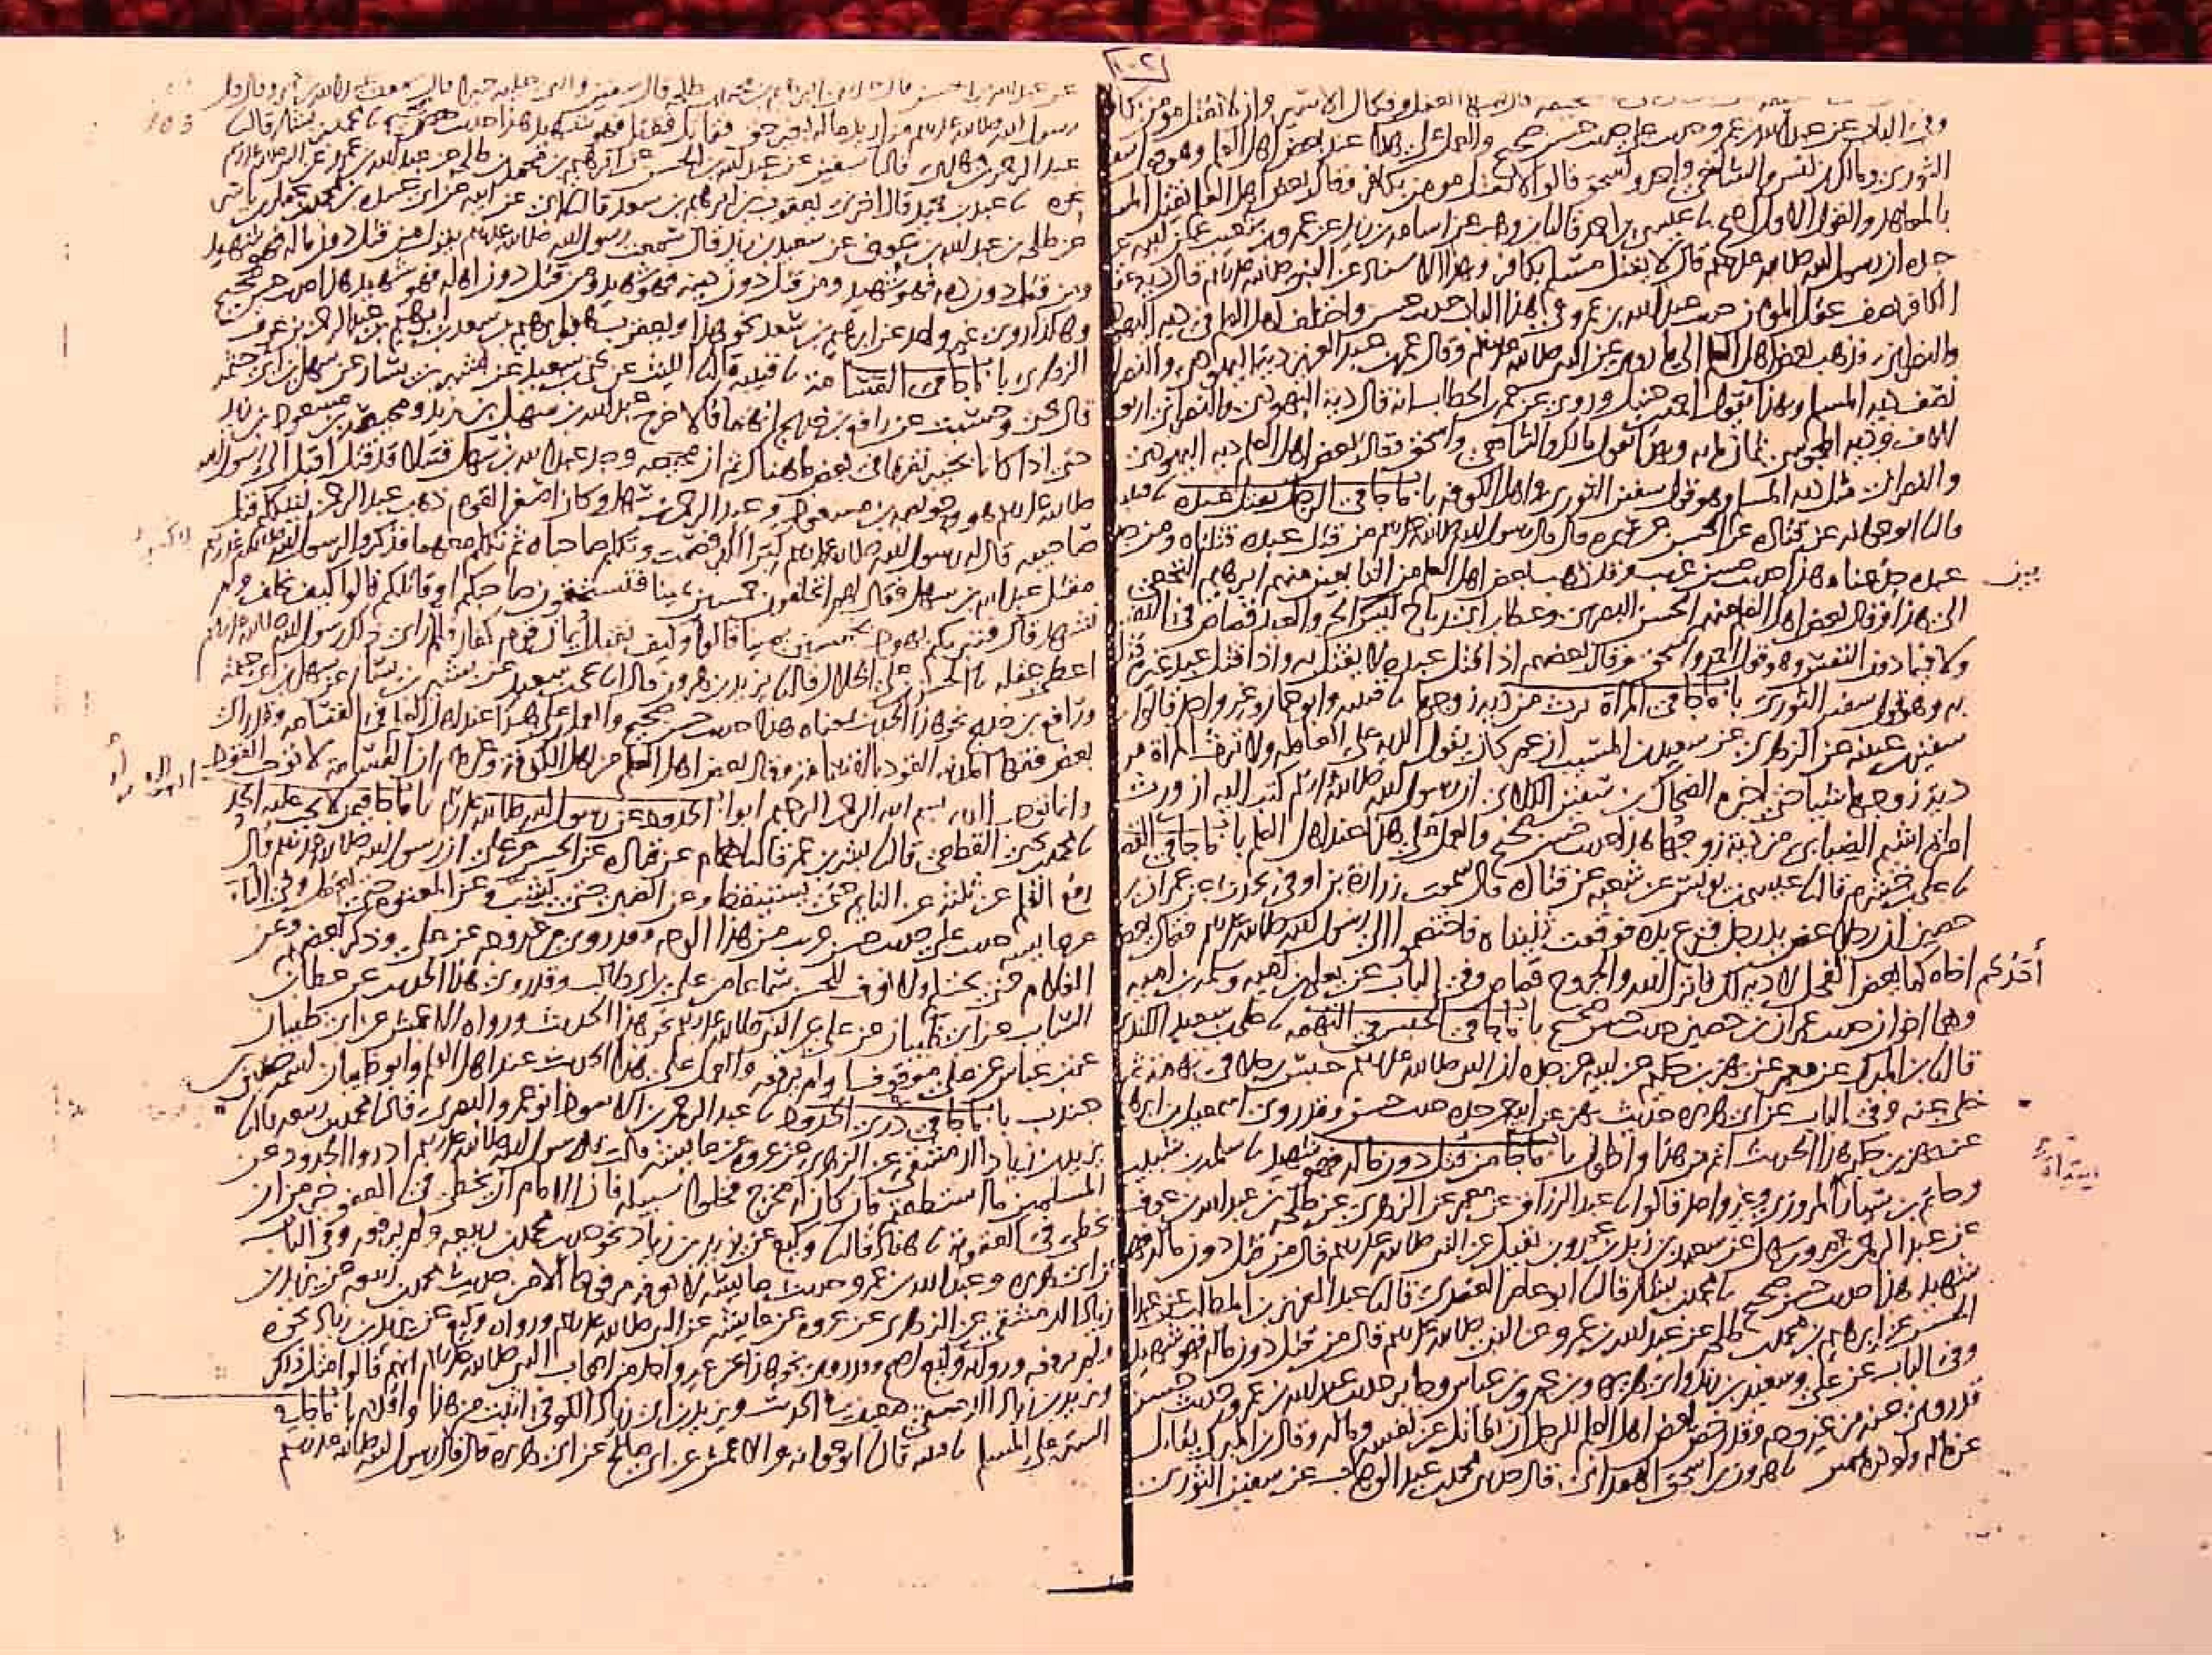 وفى الباب عن عبد الله بن عمرو حديث على حديث حسن صحيح والعمل على هذا عند بعض اهل العلم وهو قول سفين
الثورى ومالك بن انس والشافعى واحمد واسحق قالوا لا يقتل مومن بكافر وقال بعض اهل العلم يقتل المسلم
بالمعاهد والقول الاول اصح نا عيسى بن احمد قال نا ابن وهب عن اسامه بن زيد عن عمرو بن شعيب عن ابيه عن
جده ان رسول الله صلى الله عليه وسلم قال لا يقتل مسلم بكافر وبهذا الاسناد عن النبى صلى الله عليه وسلم قال دية عقل
الكافر نصف عقل المومن حديث عبد الله بن عمرو فى هذا الباب حديث حسن واختلف اهل العلم فى دية اليهودى
والنصرانى فذهب بعض اهل العلم الى ما روى عن النبى صلى الله عليه وسلم وقال عمر بن عبد العزيز دية اليهودى والنصرانى
نصف دية المسلم وبهذا يقول احمد بن حنبل وروى عن عمر بن الخطاب انه قال دية اليهودى والنصرانى اربعة
الاف ودية المجوسى ثمان مايه وبهذا يقول مالك والشافعى واسحق وقال بعض اهل العلم دية اليهودى
والنصرانى مثل دية المسلم وهو قول سفين الثورى واهل الكوفه باب ما جا فى الرجل يقتل عبده نا قتيبه
قال نا ابو عوانه عن قتاده عن الحسن عن سمره قال قال رسول الله صلى الله عليه وسلم من قتل عبده قتلناه ومن جدع
عبده جدعناه هذا حديث حسن غريب وقد ذهب بعض اهل العلم من التابعين منهم ابرهيم النخعى
الى هذا وقال بعض اهل العلم منهم الحسن البصرى وعطا بن ابى رباح ليس بين الحر والعبد قصاص فى النفس
ولا فيما دون النفس وهو قول احمد واسحق وقال بعضهم اذا قتل عبده لا يقتل به واذا قتل عبد غيره قتل
به وهو قول سفين الثورى باب ما جا فى المراة ترث من دية زوجها نا قتيبه وابو عمار وغير واحد قالوا نا
سفين بن عيينه عن الزهرى عن سعيد بن المسيب ان عمر كان يقول الديه على العاقله ولا ترث المراة من
دية زوجها شيا حتى اخبره الضحاك بن سفين الكلابى ان رسول الله صلى الله عليه وسلم كتب اليه ان ورث
امراة اشيم الضبابى من دية زوجها هذا حديث حسن صحيح والعمل على هذا عند اهل العلم باب ما جا فى القصاص
نا على بن خشرم قال نا عيسى بن يونس عن شعبه عن قتاده قال سمعت زرارة بن اوفى يحدث عن عمران بن
حصين ان رجلا عض يد رجل فنزع يده فوقعت ثنيتاه فاختصموا الى رسول الله صلى الله عليه وسلم فقال يعض
أحدكم اخاه كما يعض الفحل لا دية لك فانزل الله والجروح قصاص وفى الباب عن يعلى بن اميه وسلمه بن اميه
وهما اخوان حديث عمران بن حصين حديث حسن صحيح باب ما جا فى الحبس فى التهمه نا على بن سعيد الكندى
قال نا ابن المبرك عن معمر عن بهز بن حكيم عن ابيه عن جده ان النبى صلى الله عليه وسلم حبس رجلا فى تهمة ثم
خلى عنه وفى الباب عن ابى هريره حديث بهز عن ابيه عن جده حديث حسن وقد روى اسمعيل بن ابرهيم
عن بهز بن حكيم هذا الحديث اتم من هذا واطول باب ما جا من قتل دون ماله فهو شهيد نا سلمه بن شبيب
وحاتم بن سياه المروزى وغير واحد قالوا نا عبد الرزاق عن معمر عن الزهرى عن طلحه بن عبد الله بن عوف
عن عبد الرحمن بن عمرو بن سهل عن سعيد بن زيد بن عمرو بن نفيل عن النبى صلى الله عليه وسلم قال من قتل دون ماله فهو
شهيد هذا حديث حسن صحيح نا محمد بن بشار قال نا ابو عامر العقدى قال نا عبد العزيز بن المطلب عن عبد الله
بن الحسن عن ابرهيم بن محمد بن طلحه عن عبد الله بن عمرو عن النبى صلى الله عليه وسلم قال من قتل دون ماله فهو شهيد
وفى الباب عن على وسعيد بن زيد وابى هريره وابن عمر وابن عباس وجابر حديث عبد الله بن عمرو حديث حسن
قد روى عنه من غير وجه وقد رخص بعض اهل العلم للرجل ان يقاتل عن نفسه وماله وقال ابن المبرك يقاتل
عن ماله ولو درهمين نا هرون بن اسحق الهمدانى قال حدثنى محمد بن عبد الوهاب عن سفين الثورى
103
رسول الله صلى الله عليه وسلم من اريد ماله بغير حق فقاتل فقتل فهو شهيد هذا حديث صحيح نا محمد بن بشار قال نا
عبد الرحمن بن مهدى قال نا سفين عن عبد الله بن الحسن عن ابرهيم بن محمد بن طلحه عن عبد الله بن عمرو عن النبى صلى الله عليه وسلم
نحوه نا عبد بن حميد قال اخبرنى يعقوب بن ابرهيم بن سعد قال نا ابى عن ابيه عن ابى عبيده بن محمد بن عمار بن ياسر
عن طلحه بن عبد الله بن عوف عن سعيد بن زيد قال سمعت رسول الله صلى الله عليه وسلم يقول من قتل دون ماله فهو شهيد
ومن قتل دون دمه فهو شهيد ومن قتل دون دينه فهو شهيد ومن قتل دون اهله فهو شهيد هذا حديث حسن صحيح
وهكذا روى غير واحد عن ابرهيم بن سعد نحو هذا ويعقوب هو ابن ابرهيم بن سعد بن ابرهيم بن عبد الرحمن بن عوف
الزهرى باب ما جا فى القسامة نا قتيبه قال نا الليث عن يحيى بن سعيد عن بشير بن يسار عن سهل بن ابى حثمة
قال يحيى وحسبت عن رافع بن خديج انهما قالا خرج عبد الله بن سهل بن زيد ومحيصة بن مسعود بن زيد
حتى اذا كانا بخيبر تفرقا فى بعض ما هناك ثم ان محيصه وجد عبد الله بن سهل قتيلا قد قتل اقبل الى رسول الله
صلى الله عليه وسلم هو وحويصه بن مسعود وعبد الرحمن بن سهل وكان اصغر القوم ذهب عبد الرحمن ليتكلم قبل
صاحبيه قال له رسول الله صلى الله عليه وسلم كبر الكبر فصمت وتكلم صاحباه ثم تكلم معهما فذكروا لرسول الله صلى الله عليه وسلم
مقتل عبد الله بن سهل فقال لهم اتحلفون خمسين يمينا فتستحقون صاحبكم او قاتلكم قالوا كيف نحلف ولم
نشهد قال فتبريكم يهود بخمسين يمينا قالوا وكيف نقبل ايمان قوم كفار فلما راى ذلك رسول الله صلى الله عليه وسلم
اعطى عقله نا الحسن بن على الخلال قال نا يزيد بن هرون قال نا يحيى بن سعيد عن بشير بن يسار عن سهل بن ابى حثمة
ورافع بن خديج نحو هذا الحديث بمعناه هذا حديث حسن صحيح والعمل على هذا عند اهل العلم فى القسامه وقد راى
بعض فقها المدينه القود بالقسامه وقال بعض اهل العلم من اهل الكوفه وغيرهم ان القسامة لا توجب القود
وانما توجب الديه بسم الله الرحمن الرحيم ابواب الحدود عن رسول الله صلى الله عليه وسلم باب ما جا فيمن لا يجب عليه الحد
نا محمد بن يحيى القطعى قال نا بشر بن عمر قال نا همام عن قتاده عن الحسن عن على ان رسول الله صلى الله عليه وسلم قال
رفع القلم عن ثلثة عن النايم حتى يستيقظ وعن الصبى حتى يشب وعن المعتوه حتى يعقل وفى الباب
عن عايشه حديث على حديث حسن غريب من هذا الوجه وقد روى من غير وجه عن على وذكر بعضهم وعن
الغلام حتى يحتلم ولا نعرف للحسن سماعا من على بن ابى طالب وقد روى هذا الحديث عن عطا بن
السايب عن ابى ظبيان عن على عن النبى صلى الله عليه وسلم نحو هذا الحديث ورواه الاعمش عن ابى ظبيان
عن ابن عباس عن على موقوفا ولم يرفعه والعمل على هذا الحديث عند اهل العلم وابو ظبيان اسمه حصين بن
جندب باب ما جا فى درء الحدود نا عبد الرحمن بن الاسود ابو عمرو البصرى قال نا محمد بن ربيعه قال نا
يزيد بن زياد الدمشقى عن الزهرى عن عروه عن عايشه قالت قال رسول الله صلى الله عليه وسلم ادروا الحدود عن
المسلمين ما استطعتم فان كان له مخرج فخلوا سبيله فان الامام ان يخطى فى العفو خير من ان
يخطى فى العقوبة نا هناد قال نا وكيع عن يزيد بن زياد نحو حديث محمد بن ربيعه ولم يرفعه وفى الباب
عن ابى هريره وعبد الله بن عمرو حديث عايشه لا نعرفه مرفوعا الا من حديث محمد بن ربيعه عن يزيد بن
زياد الدمشقى عن الزهرى عن عروه عن عايشه عن النبى صلى الله عليه وسلم ورواه وكيع عن يزيد بن زياد نحوه
ولم يرفعه ورواية وكيع اصح وقد روى نحو هذا عن غير واحد من اصحاب النبى صلى الله عليه وسلم انهم قالوا مثل ذلك
ويزيد بن زياد الدمشقى ضعيف فى الحديث ويزيد بن ابى زياد الكوفى اثبت من هذا واقدم باب ما جا فى
الستر على المسلم نا قتيبه قال نا ابو عوانه عن الاعمش عن ابى صالح عن ابى هريره قال قال رسول الله صلى الله عليه وسلم